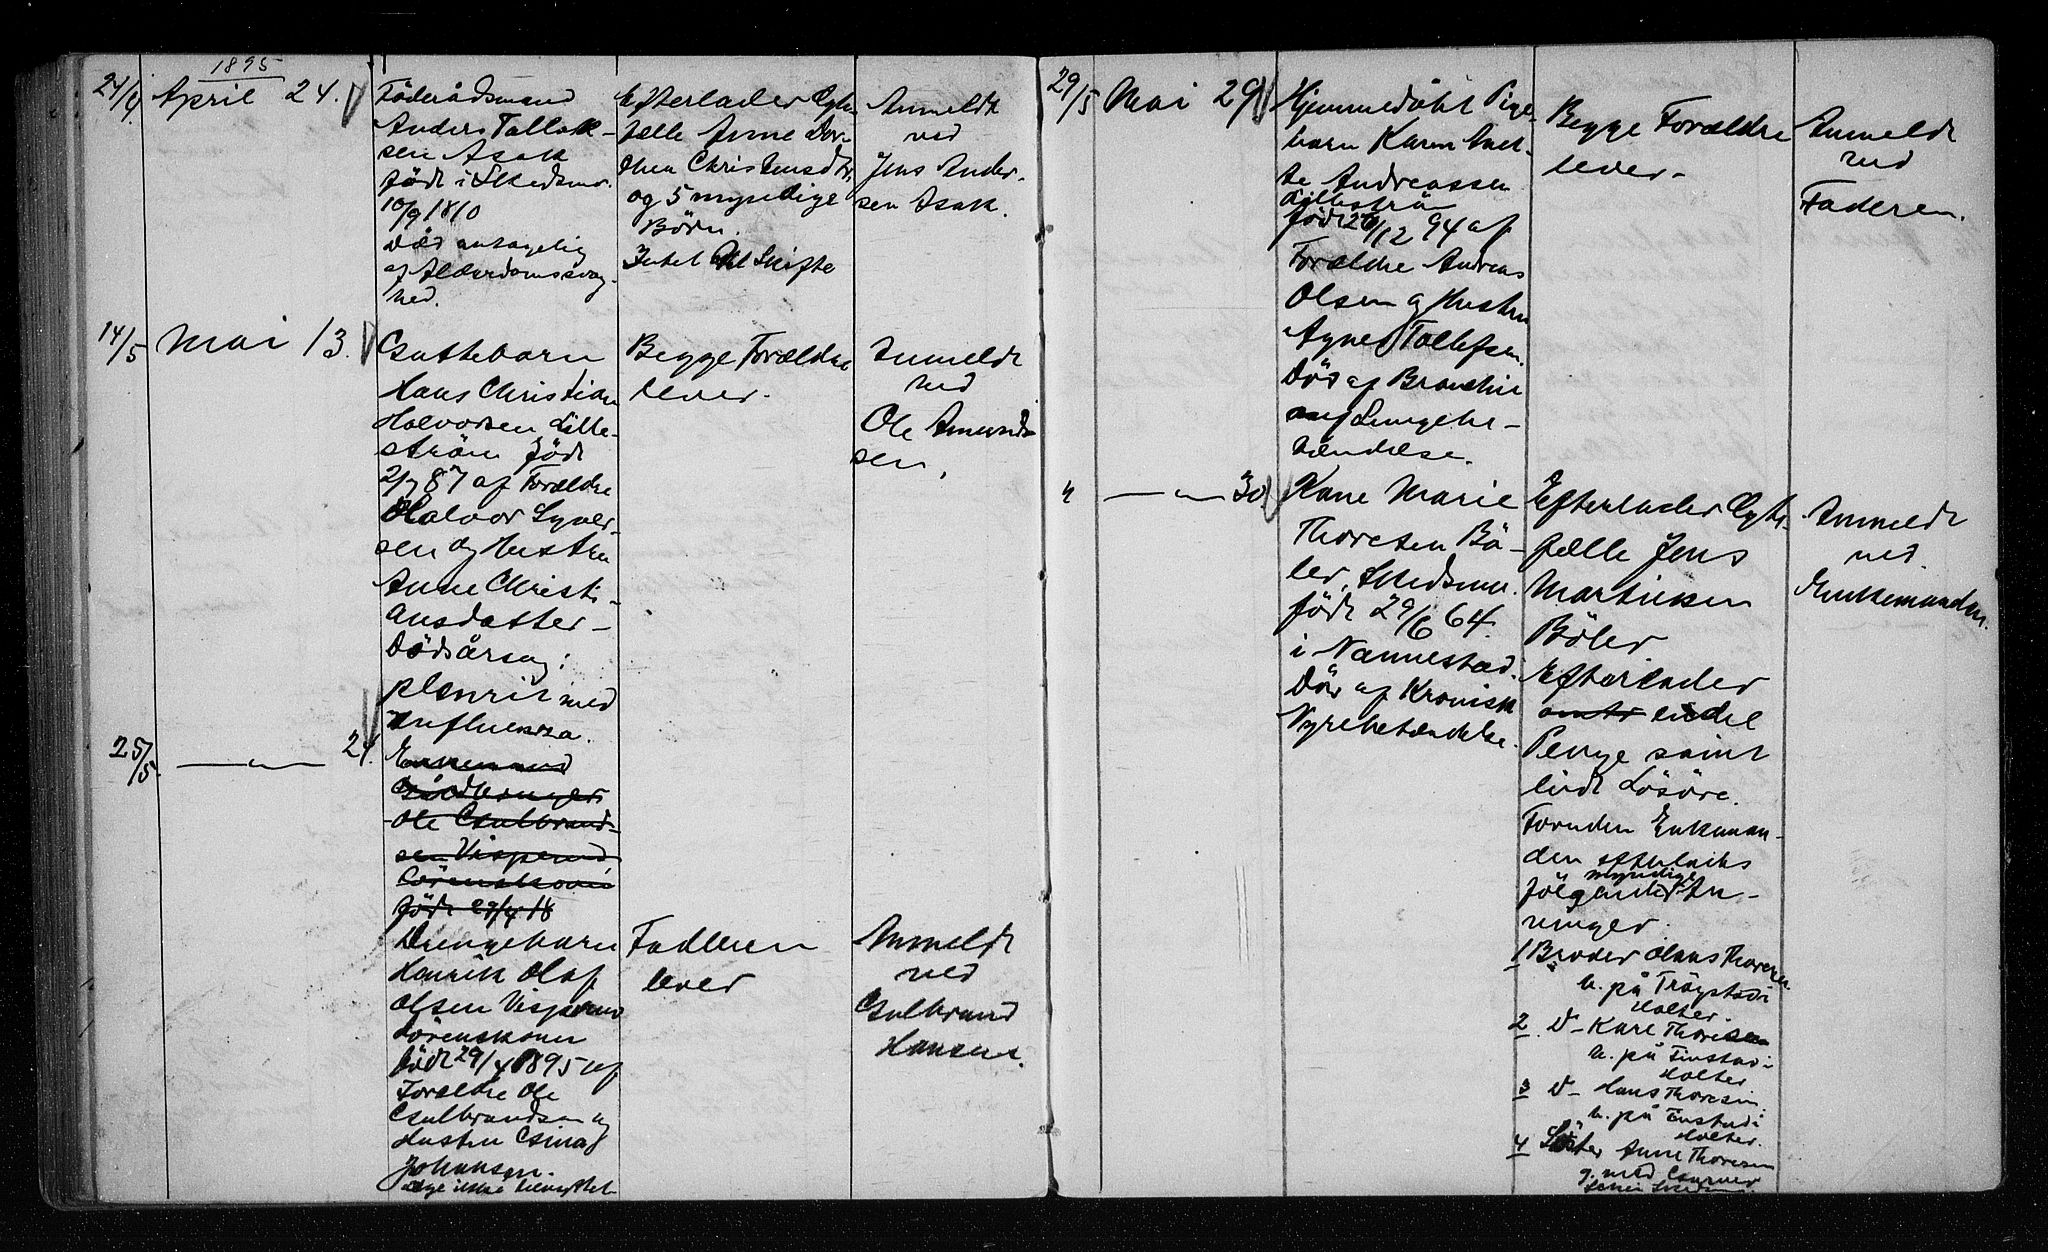 1895
24/4 April 24.
Föderådsmand
Anders Tollef-
sen Asak
född i Skedsmo.
10/9 1810
Död antagelig
af Alderdomssvag-
hed.
Efterlader Ægte-
fælle Anne Dor-
thea Christensdtr.
og 5 myndige
Börn.
Intet til Skifte
Anmeldt
ved
Jens Ander-
sen Asak.
14/5 Mai 13.
Guttebarn
Hans Christian
Halvorsen Lille-
ström född
2/7 87 af Forældre
Halvor Syver-
sen og Hustru
Anne Christi-
ansdatter -
Dödsårsag:
pleurit med
Influenza.
Begge Forældre
lever.
Anmeldt
ved
Ole Amund-
sen.
25/5 — " — 24.
Enkemand
Gårdbruger
Ole Gulbrand-
sen Visperud
Lörenskoven
född 29/4 18
Drengebarn
Henrik Olaf
Olsen Visperud
Lörenskoven
född 29/4 1895 af
Forældre Ole
Gulbrandsen og
Hustru Gina
Johansen.
Faderen
lever
Anmeldt
ved
Gulbrand
Hansen.
29/5 Mai 29
Hjemmedöbt Pige-
barn Karen Anet-
te Andreassen
Lilleström
född 26/12 94 af
Forældre Andreas
Olsen og Hustru
Agnes Tollefsen.
Död af Bronchit
og Lungebe-
tændelse.
Begge Forældre
lever -
Anmeldt
ved
Faderen.
" — " — 30
Kone Marie
Thoresen Bö-
ler, Skedsmo.
född 29/6 64.
i Nannestad.
Död af Kronisk
Nyrebetændelse.
Efterlader Ægte-
fælle Jens
Martinsen
Böler
Efterlader
endel
Penge samt
lidt Lösöre.
Foruden Enkeman-
den efterlades
myndige
fölgende Ar-
vinger.
1 Broder Hans Thoresen
b. på Trögstad i
Holter.
2. D- Karl Thoresen
b. på Finstad i
Holter.
3 D- Hans Thoresen
b. på Finstad i
Holter.
4 Söster Anne Thoresen
g. med
Anmeldt
ved
Enkemanden.